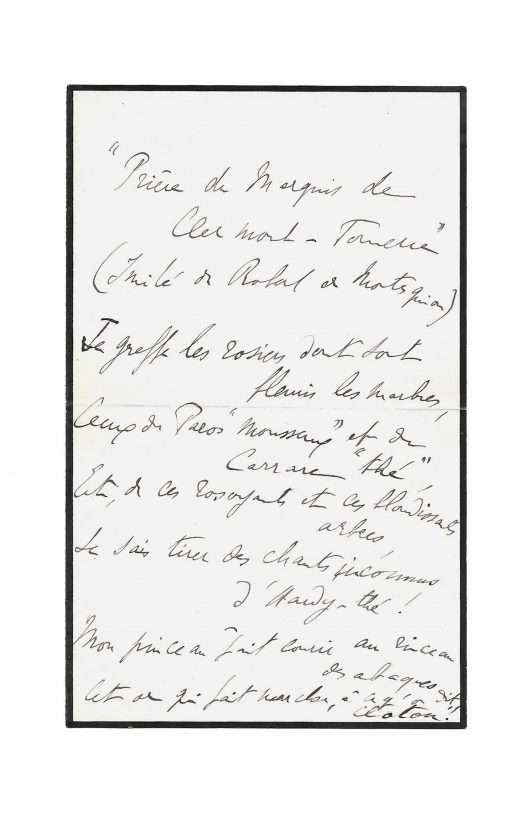 "Prière du Marquis de
Clermont-Tonnerre"
(Imité de Robert de Montesquiou)
Je greffe les rosiers dont sont
fleuris les marbres,
Ceux de Paros "mousseux" et du
Carrare "thé",
Et, de ces rosoyants et ces blondissants
arbres
Je sais tirer des chants inconnus
d'Hardy-thé !
Mon pinceau fait courir au rinceau
des abaques
Cet or qui fait marcher, à ce qu'on dit,